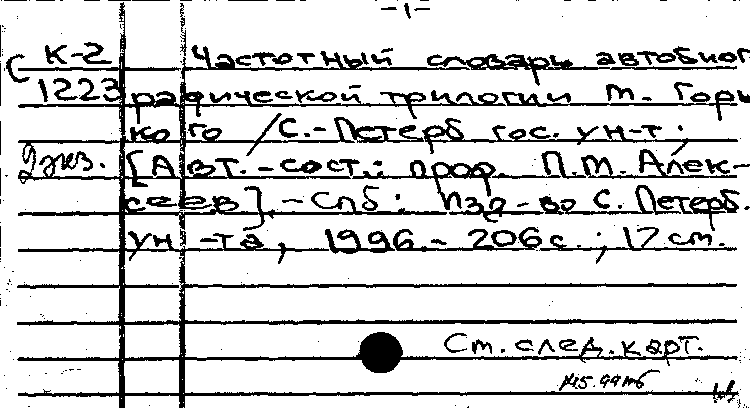 -1-
К-2 Частотный словарь автобиог
С 1223 рафической трилогии М. Горь
кого / С.-Петерб гос. ун-т;
2 экз. [Авт.-сост.: проф. П.М. Алек-
сеев]. - Спб: Изд-во С. Петерб.
ун-та, 1996. - 206 с.; 17 см.
См. след. карт.